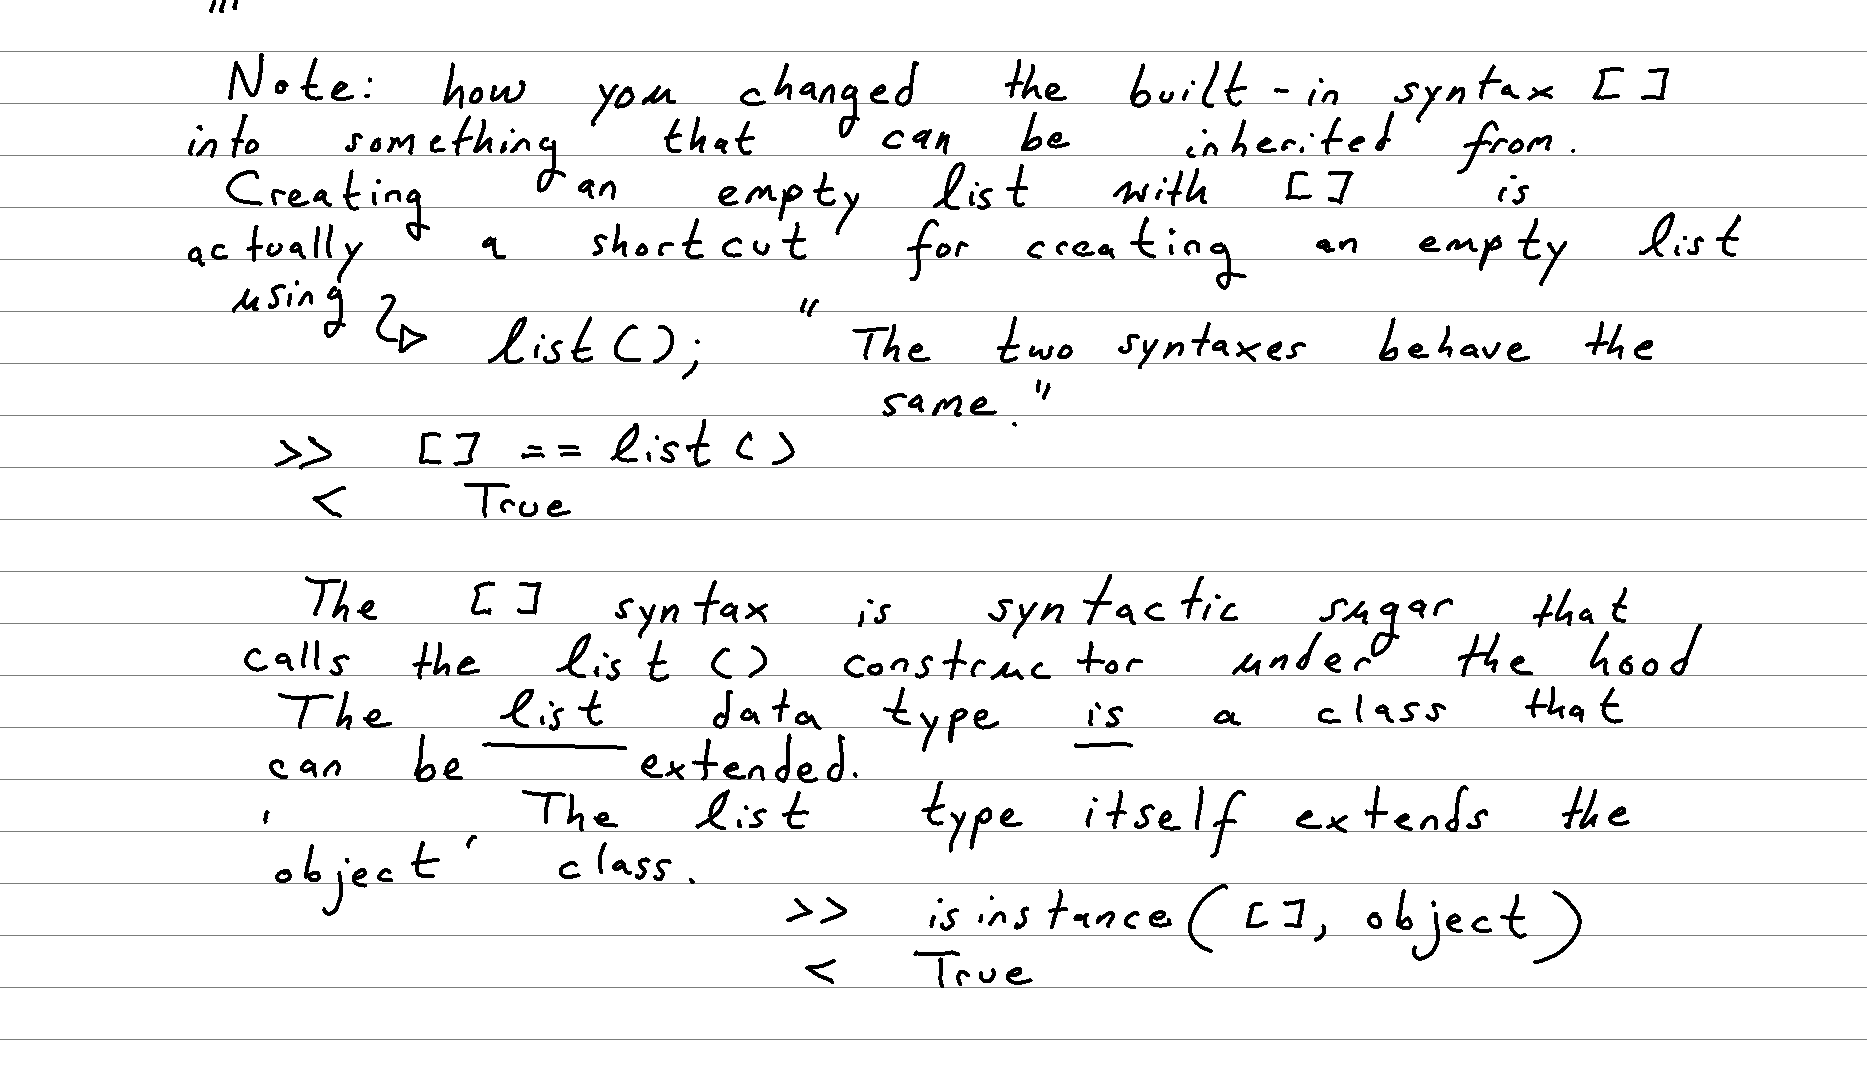 "'
Note: how you changed the built-in syntax []
into something that can be inherited from.
Creating an empty list with [] is
actually a shortcut for creating an empty list
using
list(); "The two syntaxes behave the
same."
>> [] == list()
< True
The [] syntax is syntactic sugar that
calls the list () constructor under the hood
The list data type is a class that
can be extended.
The list type itself extends the
'object' class.
>> isinstance([], object)
< True